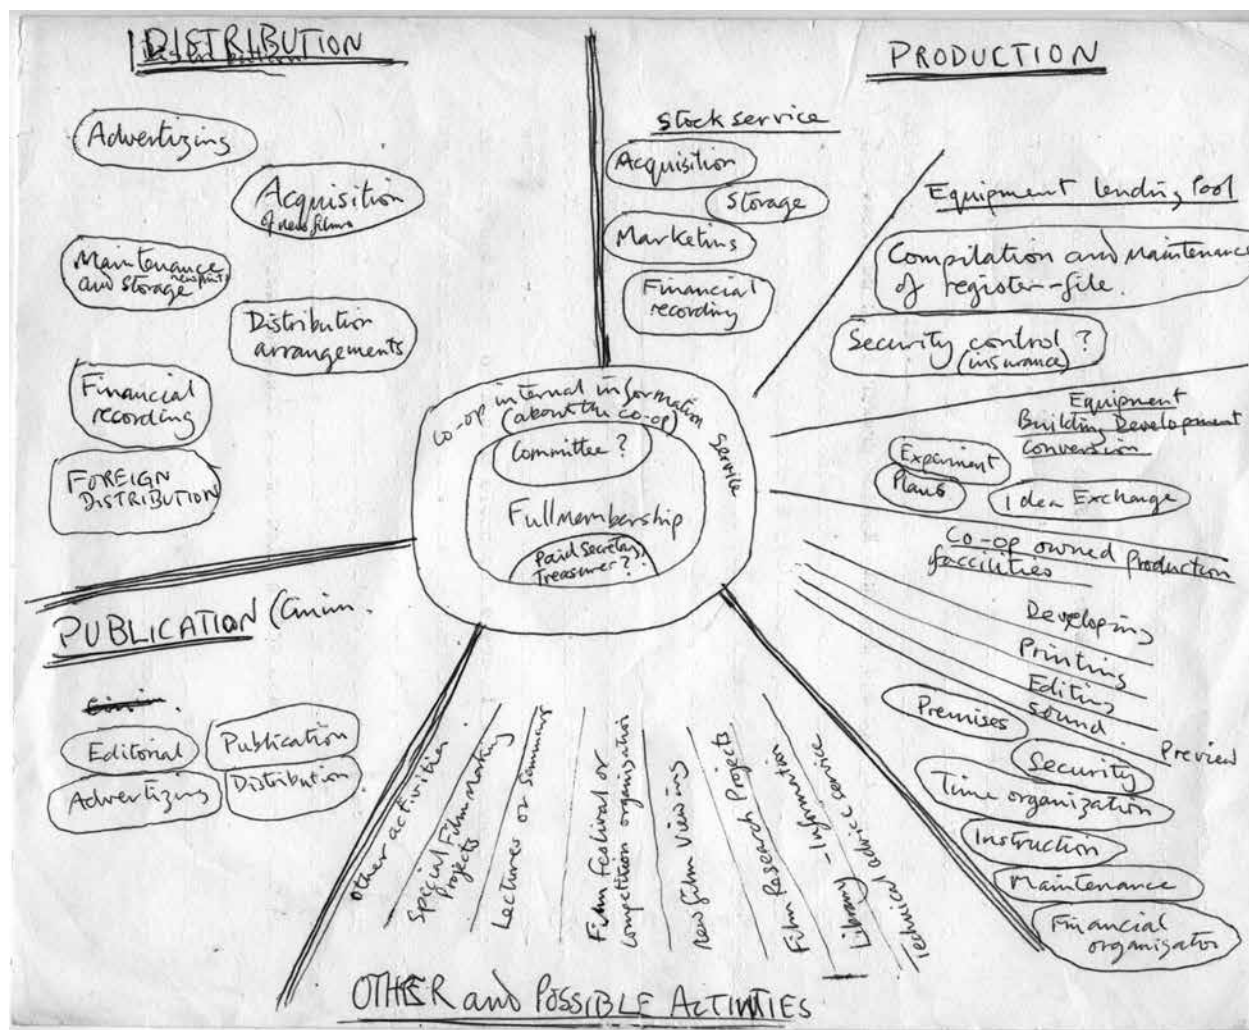 DISTRIBUTION
Advertizing
Acquisition
of new films
Maintenance
and storage
Distribution
arrangements
Financial
recording
FOREIGN
DISTRIBUTION
PRODUCTION
Stock service
Acquisition
Storage
Marketing
Financial
recording
Equipment lending Pool
Compilation and Maintenance
of register-file.
Security control ?
(insurance)
Equipment
Building Development
Conversion
Experiment
Plans
Idea Exchange
Co-op owned production
faccilities
Developing
Printing
Editing
Sound
Preview
Premises
Security
Time organization
Instruction
Maintenance
Financial
organisation
co-op internal information service
(about the co-op)
Committee ?
Full membership
Paid Secretary,
Treasurer ?
PUBLICATION (Cinim.
Editorial
Publication
Advertizing
Distribution
Other activities
Special Filmmaking
Projects
Lectures or seminars
Film festival or
competition organization
New film viewing
Film Research Projects
Library - Information
Technical advice service
OTHER and POSSIBLE ACTIVITIES